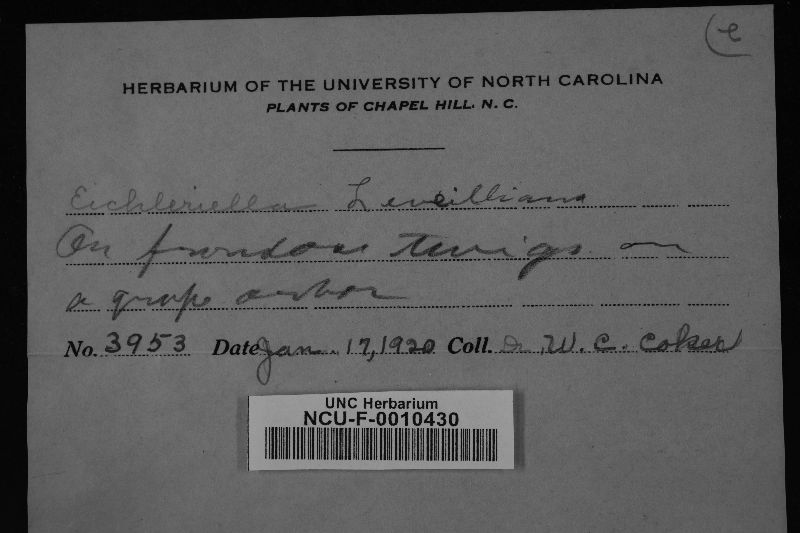 e
HERBARIUM OF THE UNIVERSITY OF NORTH CAROLINA
PLANTS OF CHAPEL HILL. N. C.
Eichleriella Leveilliana
On frondose twigs on
a grape arbor
No. 3953 Date Jan. 17, 1920 Coll. Dr. W. C. Coker
UNC Herbarium
NCU-F-0010430